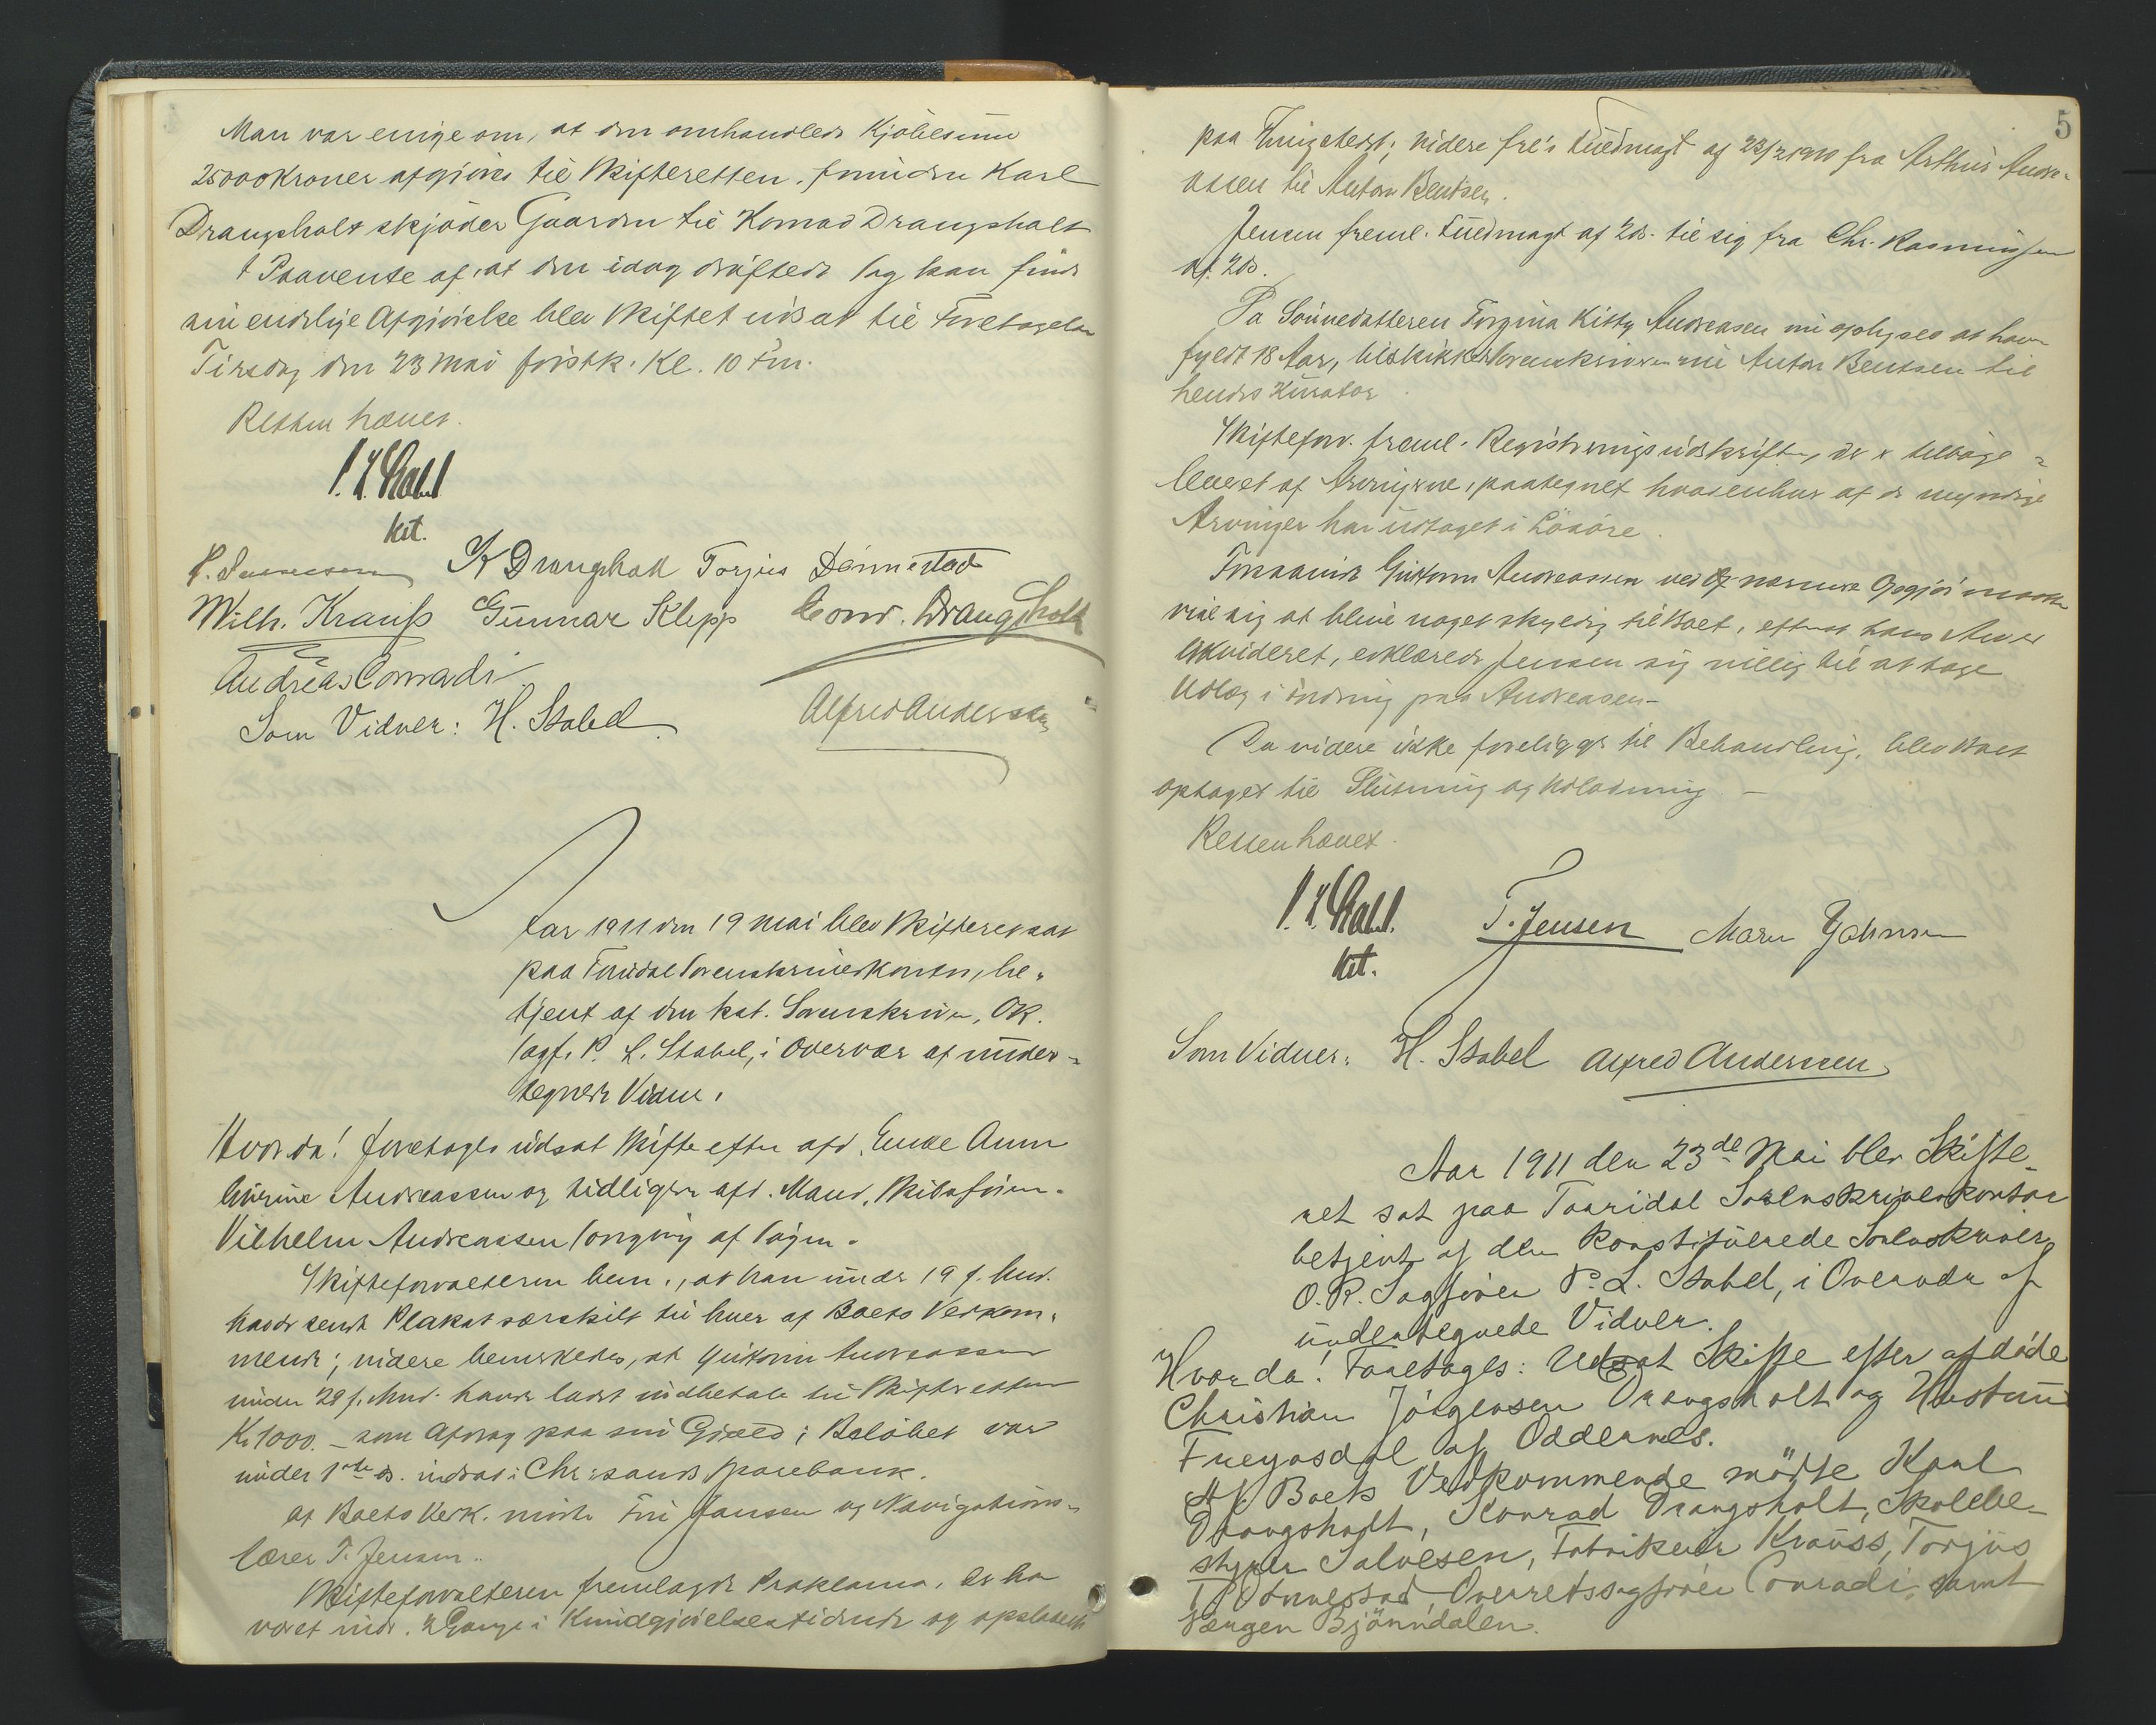 Man var enige om, at den omhandlede Kjøbesum
25000 Kroner afgives til Skifteretten, forinden Karl
Drangsholt skjøder Gaarden til Konrad Drangsholt
I Paavente af, at den idag drøftede Sag kan finde
sin endelige Afgjørelse blev Skiftet udsat til Foretagelse
Tirsdag den 23 Mai førstk. Kl. 10 Fm.
Retten hævet.
P. L. Stabel
kst.
K Drangsholt Torjus Dønnestad
Wilh. Krauss Gunnar Klepp Conr. Drangsholt
Andreas Conradi
Som Vidner: H. Stabel Alfred Andersen
Aar 1911 den 19 Mai blev Skifteret sat
paa Torridal Sorenskriverkontor, be-
tjent af den kst. Sorenskriver, OR.
sagf. P. L. Stabel, i Overvær af under-
tegnede Vidner.
Hvor da! foretoges udsat Skifte efter afd. Enke Anne
Andreassen og tidligere afd. Mand, Skibsfører
Vilhelm Andreassen
Skifteforvalteren bem., at han under 19 f. Md.
havde sendt Plakat særskilt til hver af Boets Vedkom-
mende; videre bemerkedes, at Guttorm Andreassen
under 29 f. Md. havde ladet indbetale til Skifteretten
Kr 1000.- som Afdrag paa sin Gjæld; Beløbet var
under 1ste ds. indsat i Chr.sands Sparebank.
Af Boets Vedk. mødte Fru Jansen og Navigations-
lærer T. Jensen.
Skifteforvalteren fremlagde Proklama, der har
været indr. 2 Gange i Kundgjørelsestidende og opslaaet
5
paa Thingstedet; videre frl's Fuldmagt af 23/2 1910 fra Arthur Andre-
assen til Anton Bentsen.
Jensen freml. Fuldmagt af ds. til sig fra Chr. Rasmussen
af ds.
Da Sønnedatteren Torgina Kitty Andreasen nu oplyses at have
fyldt 18 Aar, beskikket Sorenskriveren nu Anton Bentsen til
hendes Kurator.
Skifteforv. freml. Registreringsudskriften, der er tilbage-
leveret af Arvingerne, paategnet hvad enhver af de myndige
Arvinger har udtaget i Løsøre.
Forsaavidt Guttorm Andreassen ved nærmere Opgjør maatte
vise sig at blive noget skyldig til Boet, efterat hans Arv er
likvideret, erklærede Jensen sig villig til at tage
Udlæg i Fordring paa Andreasen-
Da videre ikke foreligger til Behandling, blev Boet
optaget til Slutning og Udlodning. -
Retten hævet.
P. L. Stabel. T. Jensen
kst.
Som Vidner: H. Stabel Alfred Andersen
Aar 1911 den 23de Mai blev Skifte-
ret sat paa Torridal Sorenskriverkontor
betjent af den konstituerede Sorenskriver,
O.R. Sagfører P. L. Stabel, i Overvær af
undertegnede Vidner.
Hvor da! Foretoges: Udsat Skifte efter afdøde
Christian Jörgensen Drangsholt og Hustru
af Oddernes.
Af Boets Vedkommende mödte Karl
Drangsholt, Konrad Drangsholt, Skolebe-
styrer Salvesen, Fabrikeier Krauss, Torjus
Dönnestad, Overretssagförer Conradi, samt
Jörgen Bjönndalen.